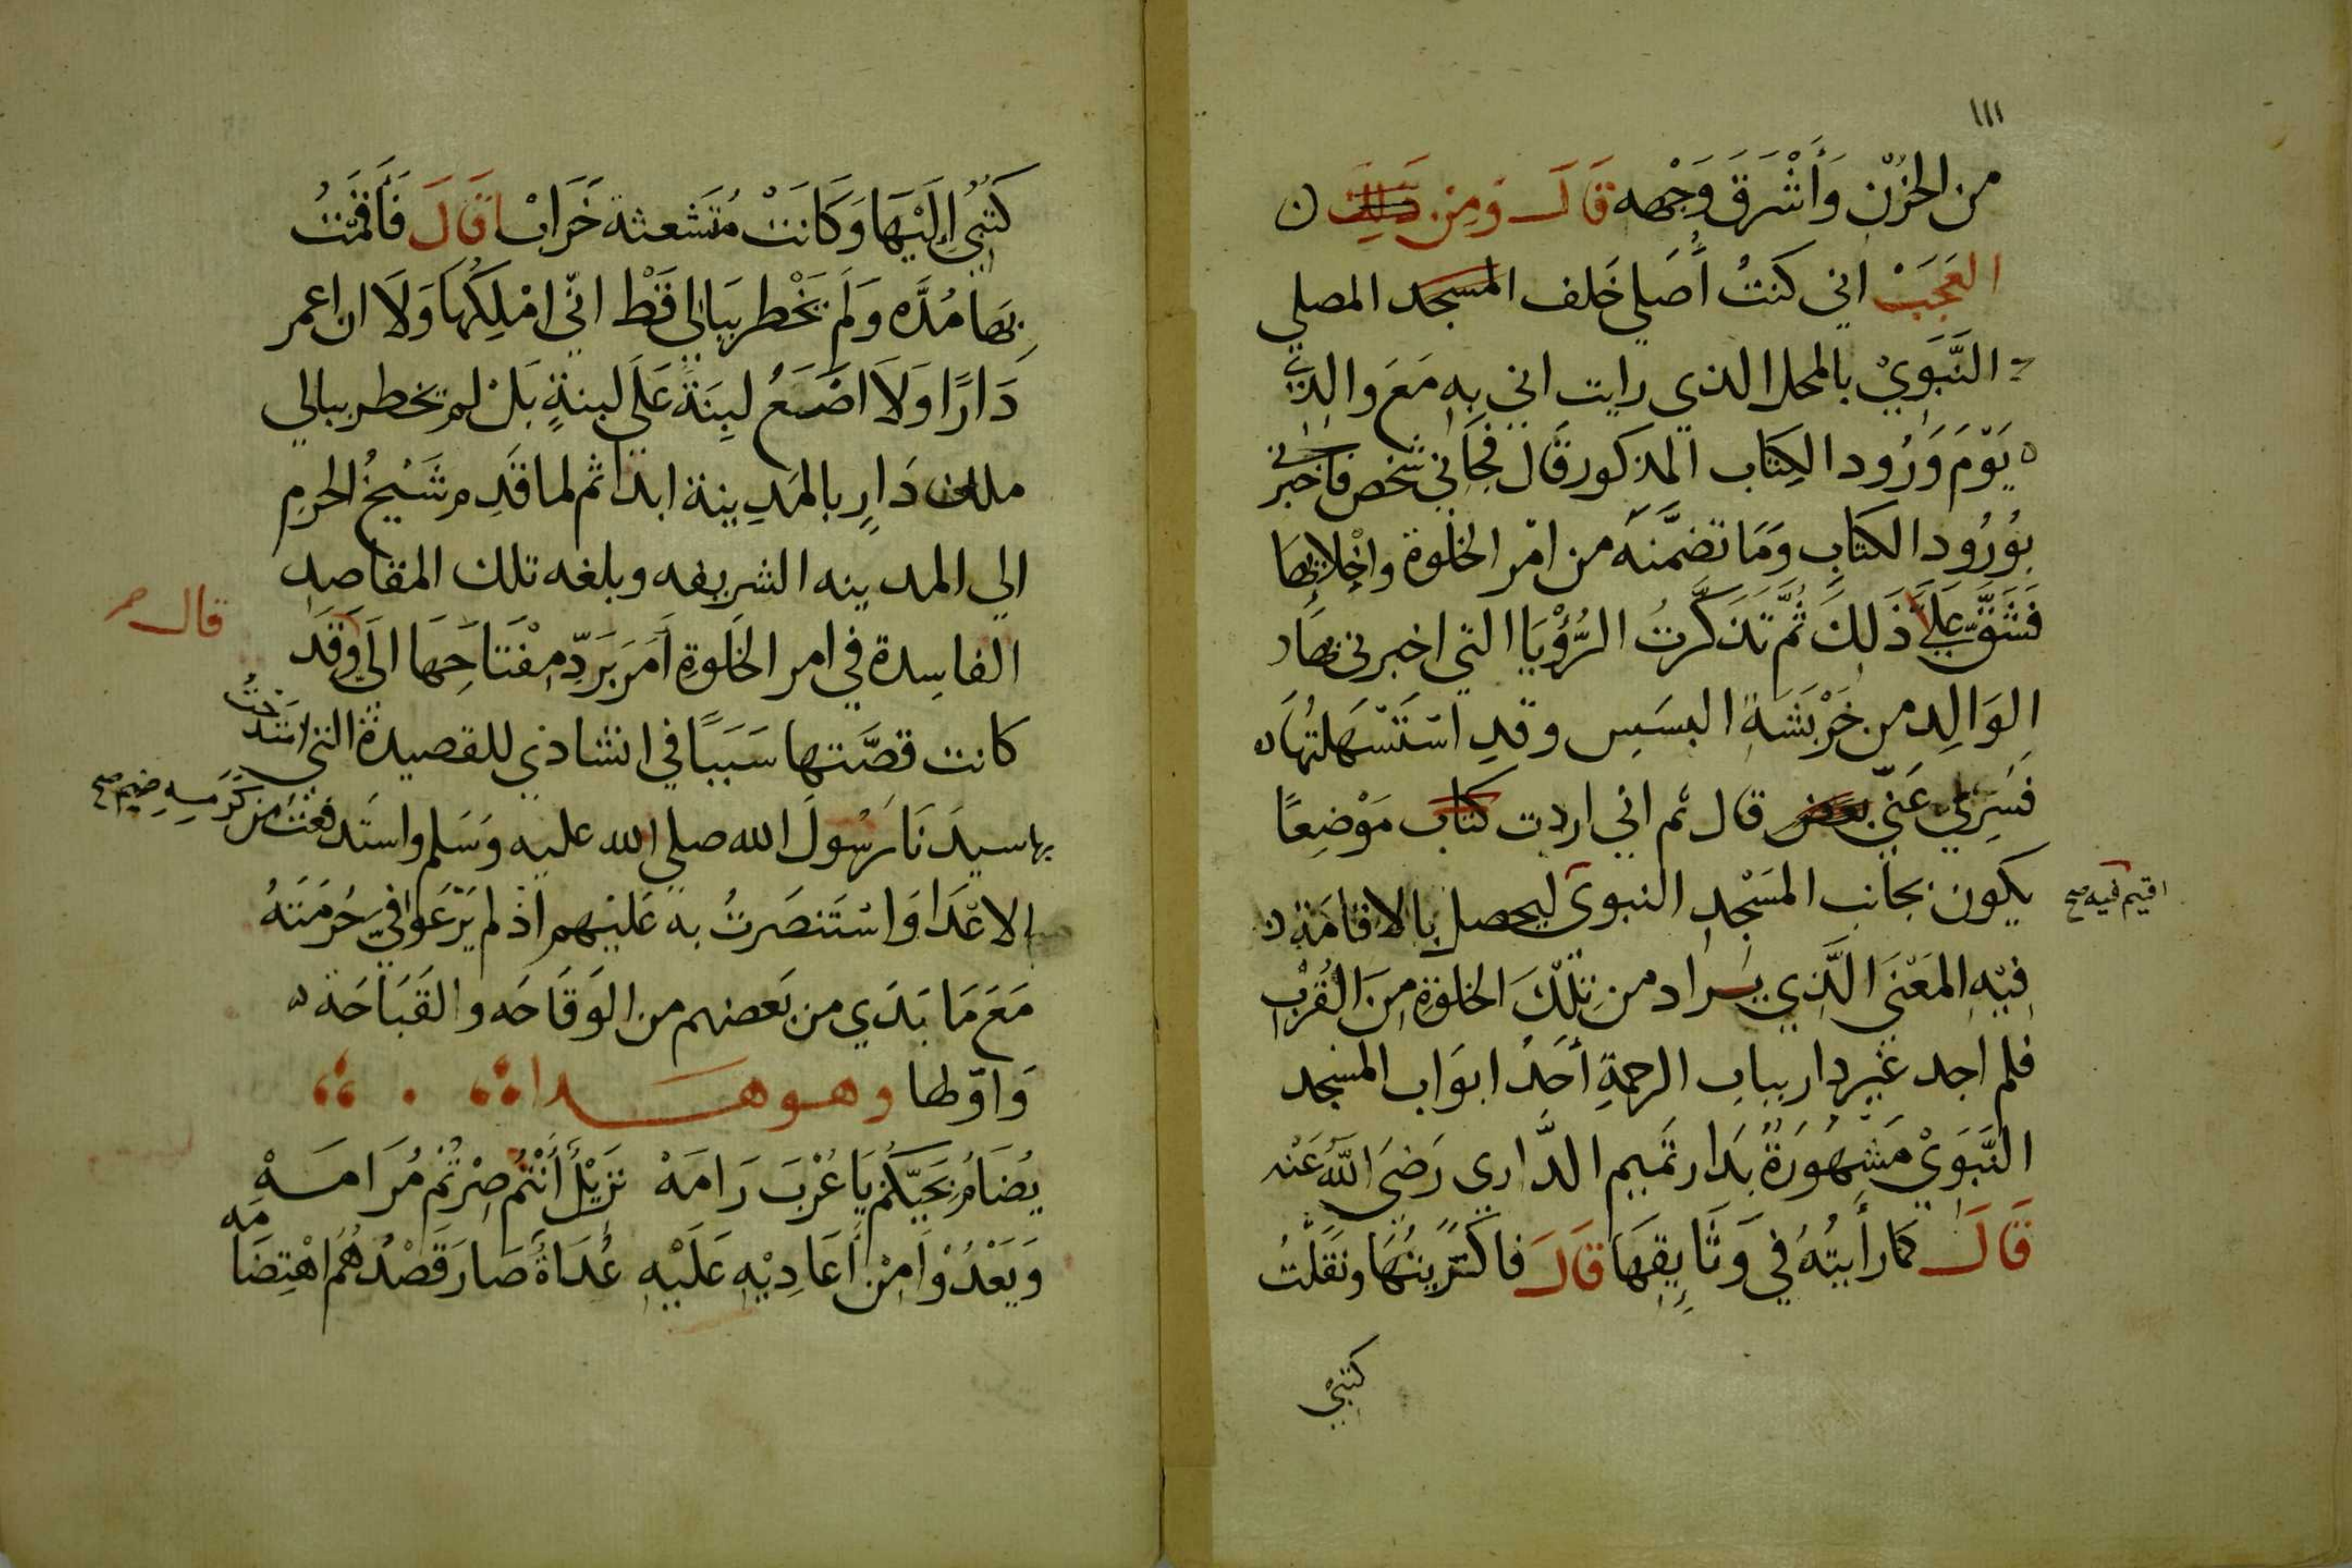 ١١١
من الحزن وَأَشْرَقَ وَجْهه قَالَ وَمِن ذَلِكَ
العَجَبْ اني كنتُ أُصَلي خَلف المسجد المصلي
النَّبَوِيْ بالمحل الذي رايت اني بِهِ مَعَ والدِي
يَوْمَ وَرُود الكِتَاب المذكور قَال فجَاني شخص فاخبرني
بوُرُود الكتَابِ وَمَا تضمَّنَه من امْر الخلْوة واخْلايهَا
فَشَقَّ عَلَيَّ ذَلِكَ ثُمَّ تَذكَّرتُ الرُّؤْيَا التي اخبرني بهَا
الوَالِد من خَرْبَشَةِ البسَيِس وقدِ اسْتَسْهَلتُهَا
فَسُرِّي عَنّي بعض قال ثم اني اردت كتاب مَوْضِعًا
يكون بجانب المسَجْدِ النبوى ليحصل بالاقامَة
اقيم فيه صح
فِيْهِ المَعْنَى الَّذِي يراد من تِلْكَ الخلوَةِ مِنَ القُرْبِ
فلم اجد غَيْر دار ببابِ الرحمةِ أحَدُ ابوَاب المسْجد
النَّبَوِيْ مَشْهُورَةٌ بدَار تَمِيم الدَّارى رَضيَ اللَّهُ عَنْه
قَالَ كما رأيتُهُ في وَثَايِقِهَا قَالَ فاكتَرَيتُهَا ونقَلْتُ
كتبيْ
كتُبيْ اِلَيْهَا وَكَانَتْ مُتَشَعثة خَرَابْ قَالَ فَأَقمْتُ
بهَا مُدَّه وَلَم يَخْطر ببَالي قَطْ انّي امْلِكُهَا وَلَا ان اعمر
دَارًا وَلَا اضَعُ لبِنَةً عَلَى لبنةٍ بَلْ لم يخطر ببالي
ملك دَارٍ بالمَدِينة ابدًا ثم لما قَدِم شَيْخُ الحرم
الي المدينه الشريفه وبلغه تلك المقاصد
قال
الفاسِدة في امر الخَلوةِ اَمَرَ بَردِّ مِفْتَاحِهَا الَيَّ وَقَد
كانت قصَّتها سَبَبًا في انشادي للقصيدة التي امتَدَحْتُ
بها سيدَنَا رَسُولَ الله صلي الله عليه وَسَلم واستَدفعْتُ من كَرَمِه ضيم صح
الاعْدَا وَاسْتَنصَرتُ به عَليْهم اذْ لم يَرْعَوا فيَّ حُرمَتَهُ
مَعَ مَا بَدَي من بَعضهم من الوَقَاحَه والقَبَاحَة
وَاوّلها وهو هَذا
يُضَامُ نَحِيّكُم يَا عُرْبَ رَامَهْ نزيْلٌ أَنْتُم صِرْتُمْ مُرَامَهْ
وَيَعْدُوْا مِنْ أَعَادِيْهِ عَلَيْهِ عُدَاةٌ صَارَ قَصْدُهُمْ اهْتِضَامَه